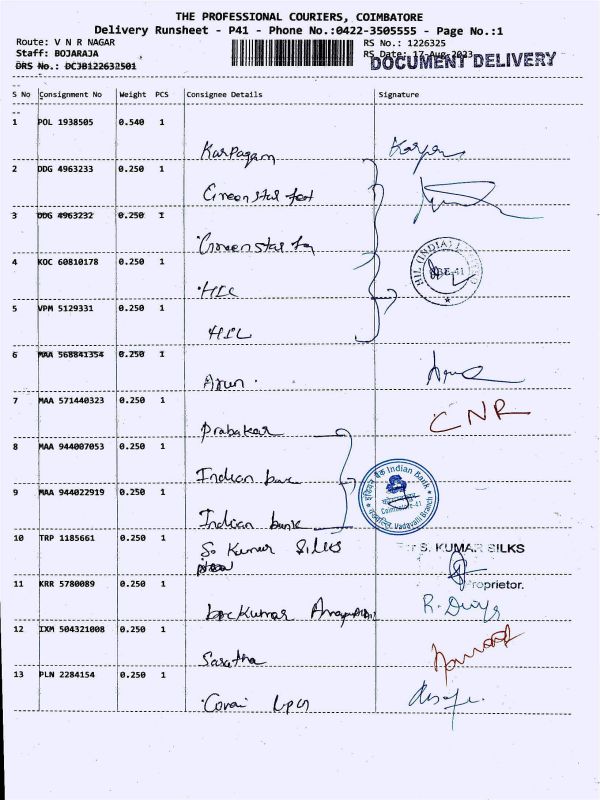 THE PROFESSIONAL COURIERS, COIMBATORE
Delivery Runsheet - P41 - Phone No.:0422-3505555 - Page No.:1
Route: V N R NAGAR
RS No.: 1226325
Staff: BOJARAJA
RS Date: 17-Aug-2023
DRS No.: DCJB122632501
DOCUMENT DELIVERY
S No Consignment No Weight PCS Consignee Details Signature
1 POL 1938505 0.540 1
Karpagam
2 DDG 4963233 0.250 1
Green star
3 DDG 4963232 0.250 1
Green star
4 KOC 60810178 0.250 1
HIL
HIL (INDIA) LIMITED
5 VPM 5129331 0.250 1
HIL
6 MAA 568841354 0.250 1
Arun
7 MAA 571440323 0.250 1
CNR
Prabakar
8 MAA 944007053 0.250 1
Indian
इंडियन बैंक Indian Bank
Coimbatore-41
Vadavalli Branch
9 MAA 944022919 0.250 1
Indian bank
10 TRP 1185661 0.250 1
S. Kumar Silks
For S. KUMAR SILKS
Proprietor.
11 KRR 5780089 0.250 1
Kumar
R. Divya
12 IXM 504321008 0.250 1
Saratha
13 PLN 2284154 0.250 1
Covai